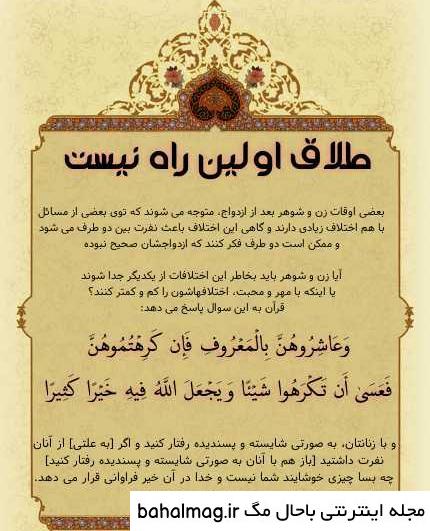 طلاق اولین راه نیست
بعضی اوقات زن و شوهر بعد از ازدواج، متوجه می شوند که توی بعضی از مسائل
با هم اختلاف زیادی دارند و گاهی این اختلاف باعث نفرت بین دو طرف می شود
و ممکن است دو طرف فکر کنند که ازدواجشان صحیح نبوده
آیا زن و شوهر باید بخاطر این اختلافات از یکدیگر جدا شوند
یا اینکه با مهر و محبت، اختلافهاشون را کم و کمتر کنند؟
قرآن به این سوال پاسخ می دهد:
وَعَاشِرُوهُنَّ بِالْمَعْرُوفِ فَإِن كَرِهْتُمُوهُنَّ
فَعَسَىٰ أَن تَكْرَهُوا شَيْئًا وَيَجْعَلَ اللَّهُ فِيهِ خَيْرًا كَثِيرًا
و با زنانتان، به صورتی شایسته و پسندیده رفتار کنید و اگر [به علتی] از آنان
نفرت داشتید [باز هم با آنان به صورتی شایسته و پسندیده رفتار کنید]
چه بسا چیزی خوشایند شما نیست و خدا در آن خیر فراوانی قرار می دهد.
مجله اینترنتی باحال مگ bahalmag.ir